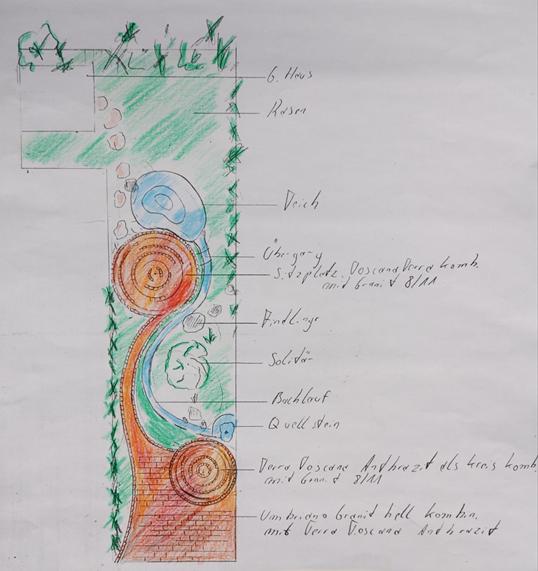 G. Haus
Rasen
Teich
Übergang
Sitzplatz Toscana Terra komb.
mit Granit 8/11
Findlinge
Solitär
Bachlauf
Quellstein
Terra Toscana Anthrazit als Kreis komb.
mit Granit 8/11
Umbriano Granit hell kombin.
mit Terra Toscana Anthrazit